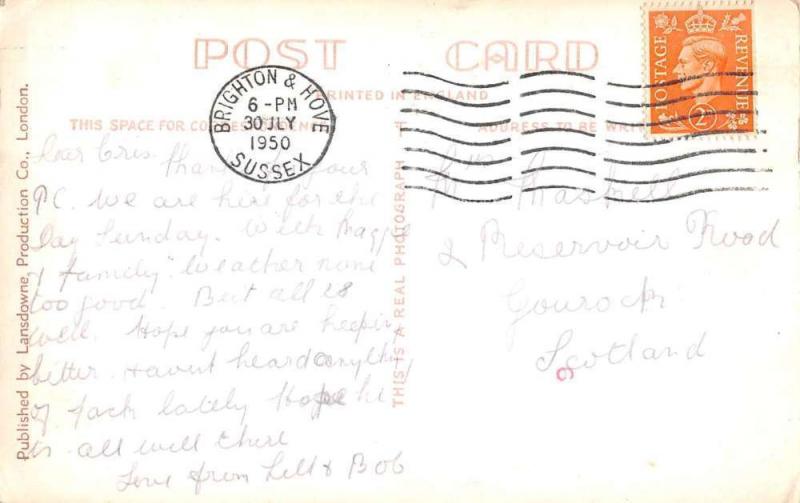 POST CARD
PRINTED IN ENGLAND
THIS SPACE FOR
ADDRESS TO BE
BRIGHTON & HOVE
6 - PM
30 JLY
1950
SUSSEX
POSTAGE REVENUE
2D
Dear Cris. Thanks for your
PC. We are here for the
Day Sunday. With Maggie
& Family. Weather none
too good. But all is
well. Hope you are keeping
better. Havent heard anything
of Jack lately Hope he
is all well there
Love from Lill & Bob
Maskell
2 Reservoir Road
Gourock
Scotland
THIS IS A REAL PHOTOGRAPH
Published by Lansdowne, Production Co., London.